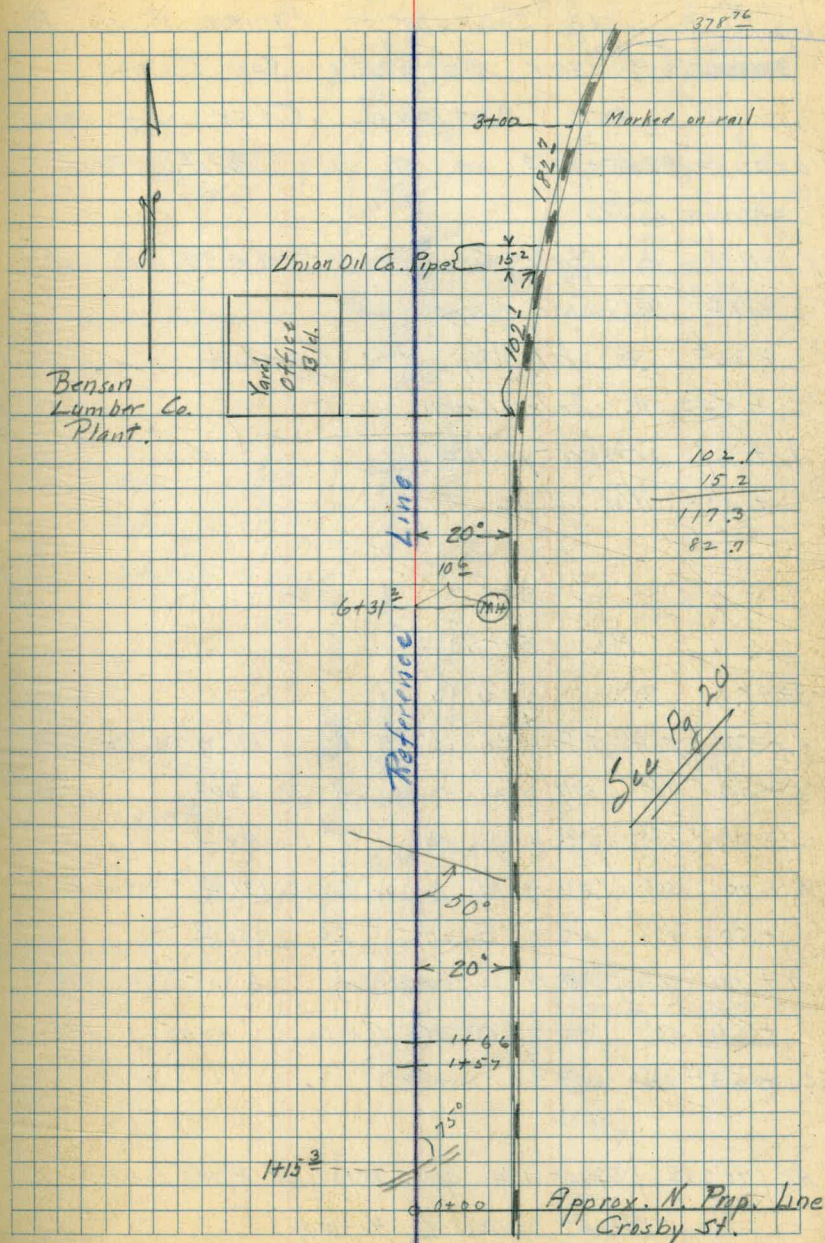 378 76
3+00
Marked on rail
182 7
Union Oil Co. Pipe
15 2
102 1
Yard
Office
Bld.
Benson
Lumber Co.
Plant.
102.1
15.2
117.3
82.7
Reference Line
20°
10 6
6+31
MH
See Pg 20
50°
20°
1+66
1+57
75°
1+15 3
0+00
Approx. N. Prop. Line
Crosby St.